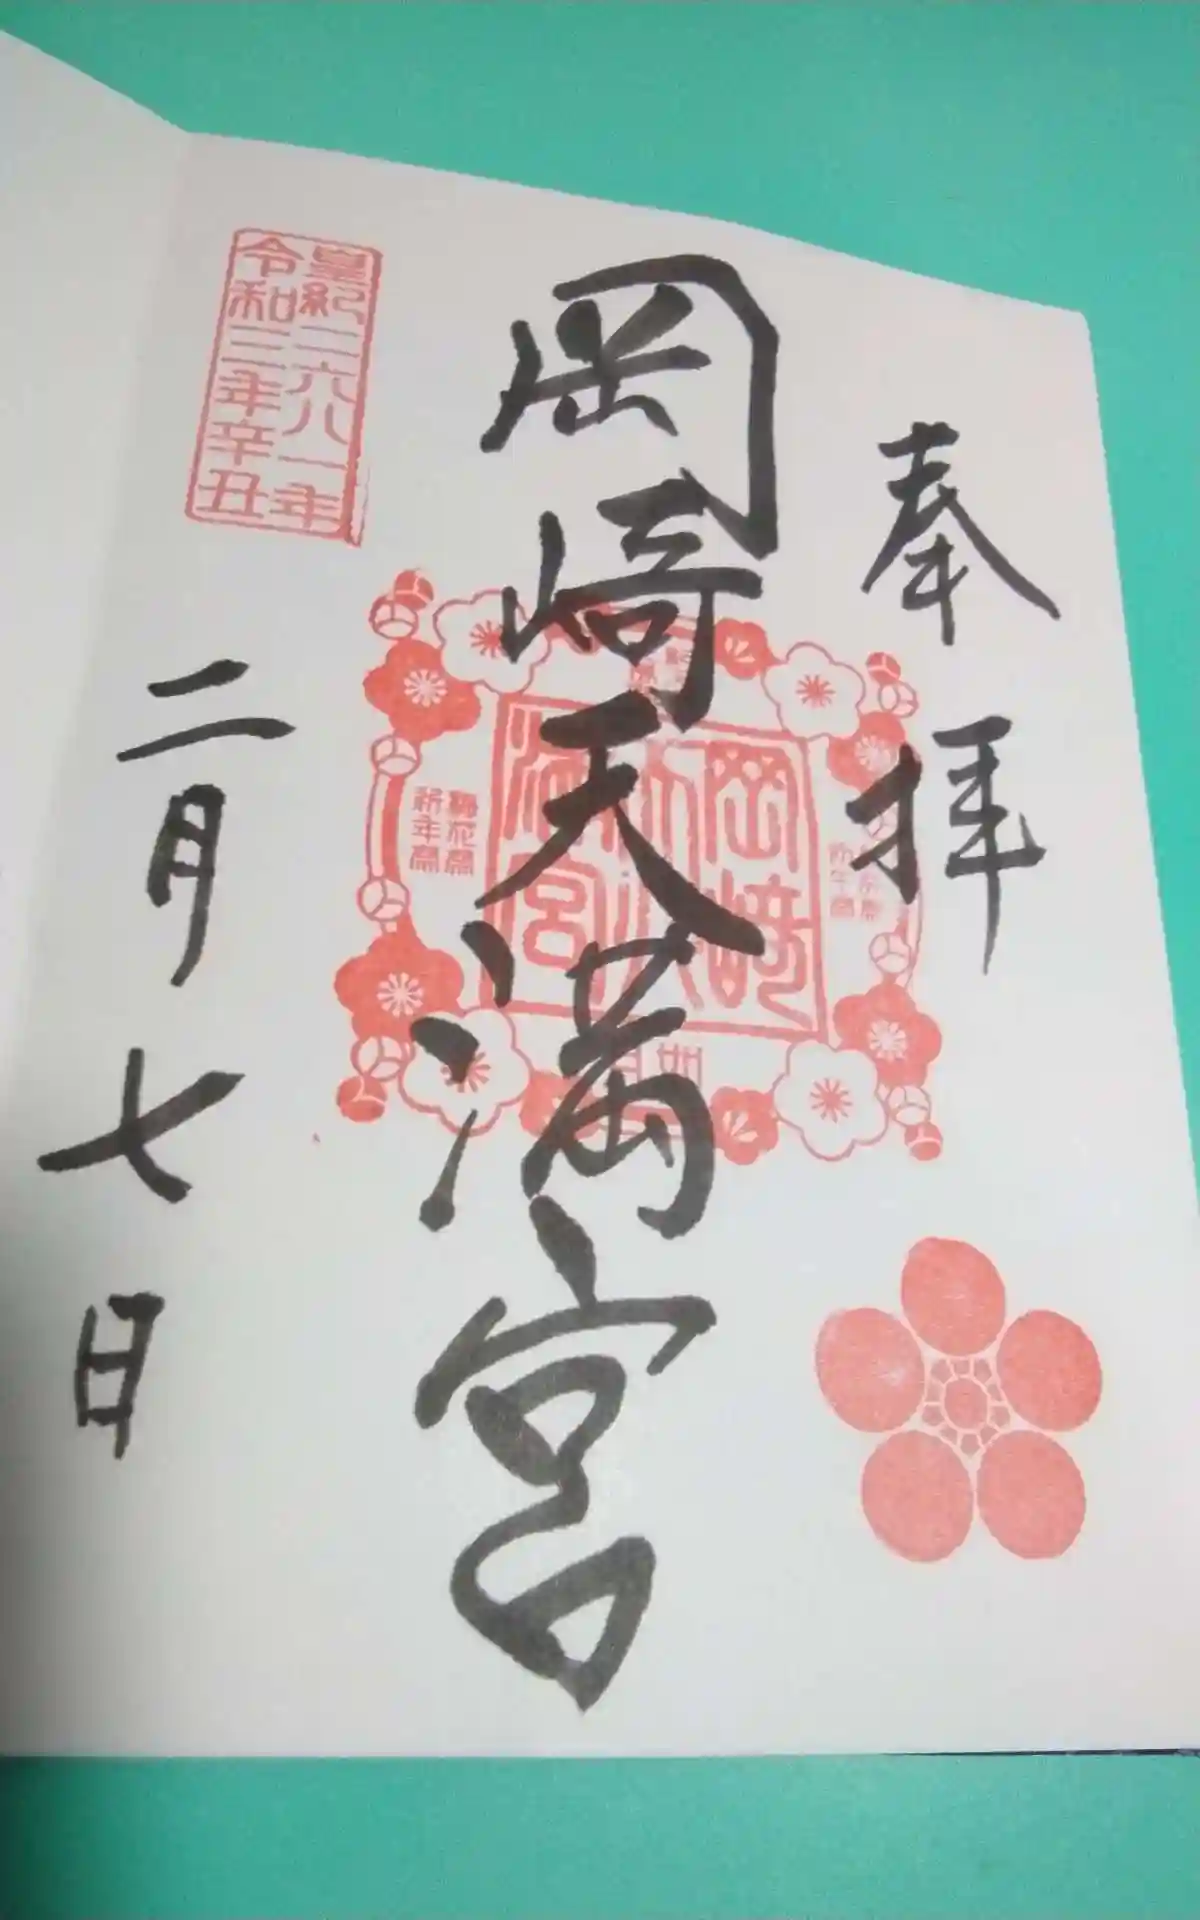 奉拝
岡崎天満宮
皇紀二六八一年
令和三年辛丑
二月七日
岡崎
天満宮
梅花祭
祈年祭
如月